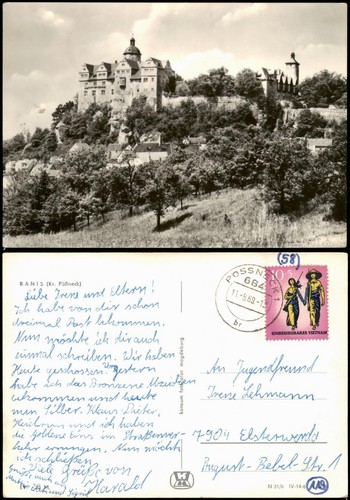 RANIS (Kr. Pößneck)
Liebe Irene und Eltern!
Ich habe von dir schon
dreimal Post bekommen.
Nun möchte ich dir auch
einmal schreiben. Wir haben
Heute geschossen. Gestern
habe ich das Bronzene Abzeichen
bekommen und heute
nun Silber. Klaus Dieter,
und ich haben
die goldene Eins im Straßenver-
kehr errungen. Nun möchte
ich schließen.
Viele Grüße von
Harald
(58)
PÖSSNECK 1
684
br
10+5
UNBESIEGBARES VIETNAM
An Jugendfreund
Irene Lehmann
7904 Elsterwerda
August-Bebel-Str. 1
119